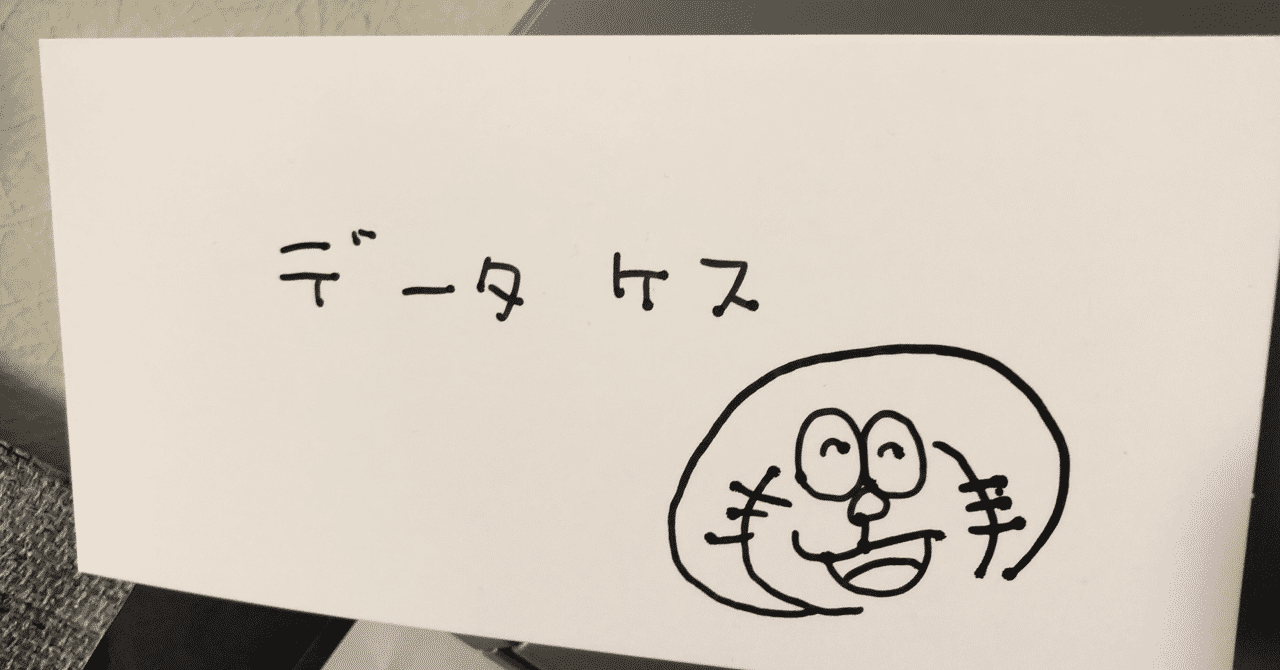 データ ケス